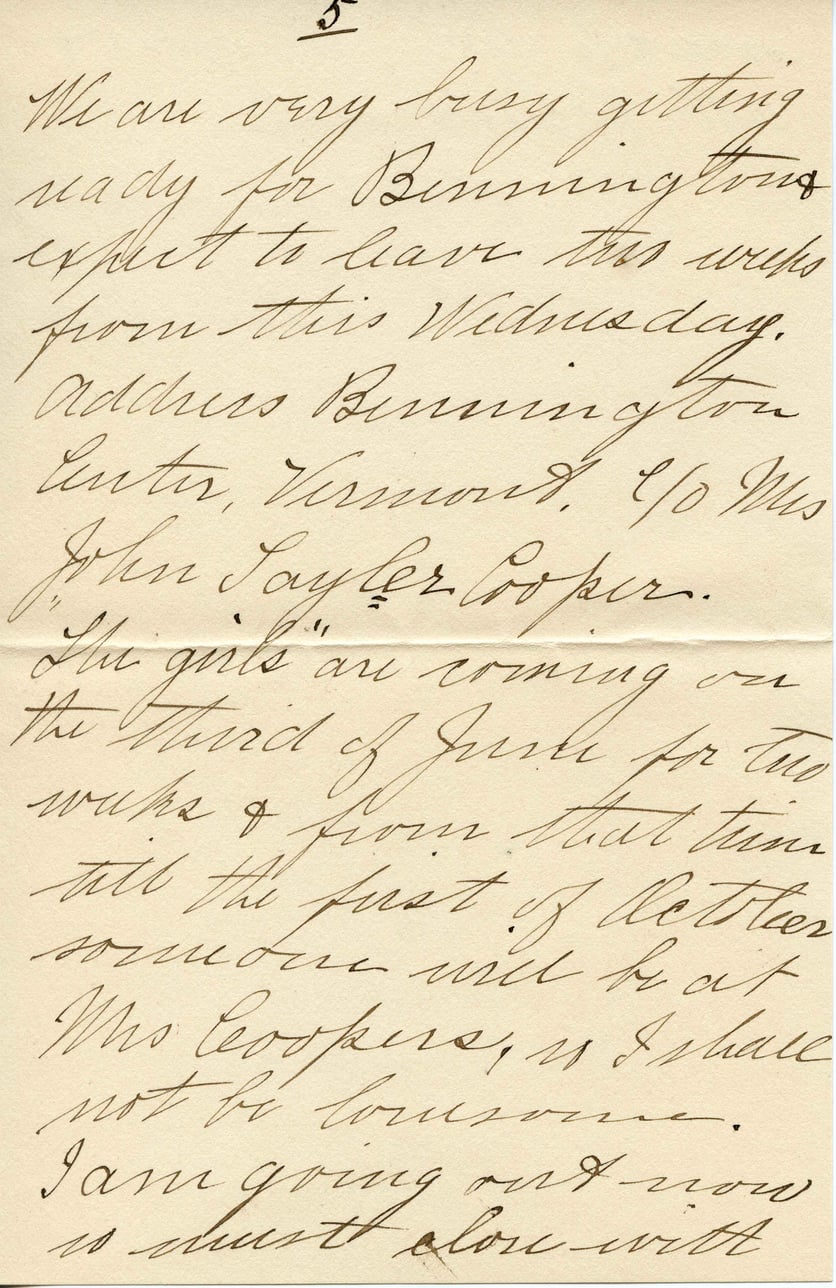 5
We are very busy getting
ready for Bennington &
expect to leave two weeks
from this Wednesday.
Address Bennington
Center, Vermont. C/O Mrs
John Tayler Cooper.
"The girls" are coming on
the third of June for two
weeks & from that time
till the first of October
someone will be at
Mrs Coopers, so I shall
not be lonesome.
I am going out now
so must close with